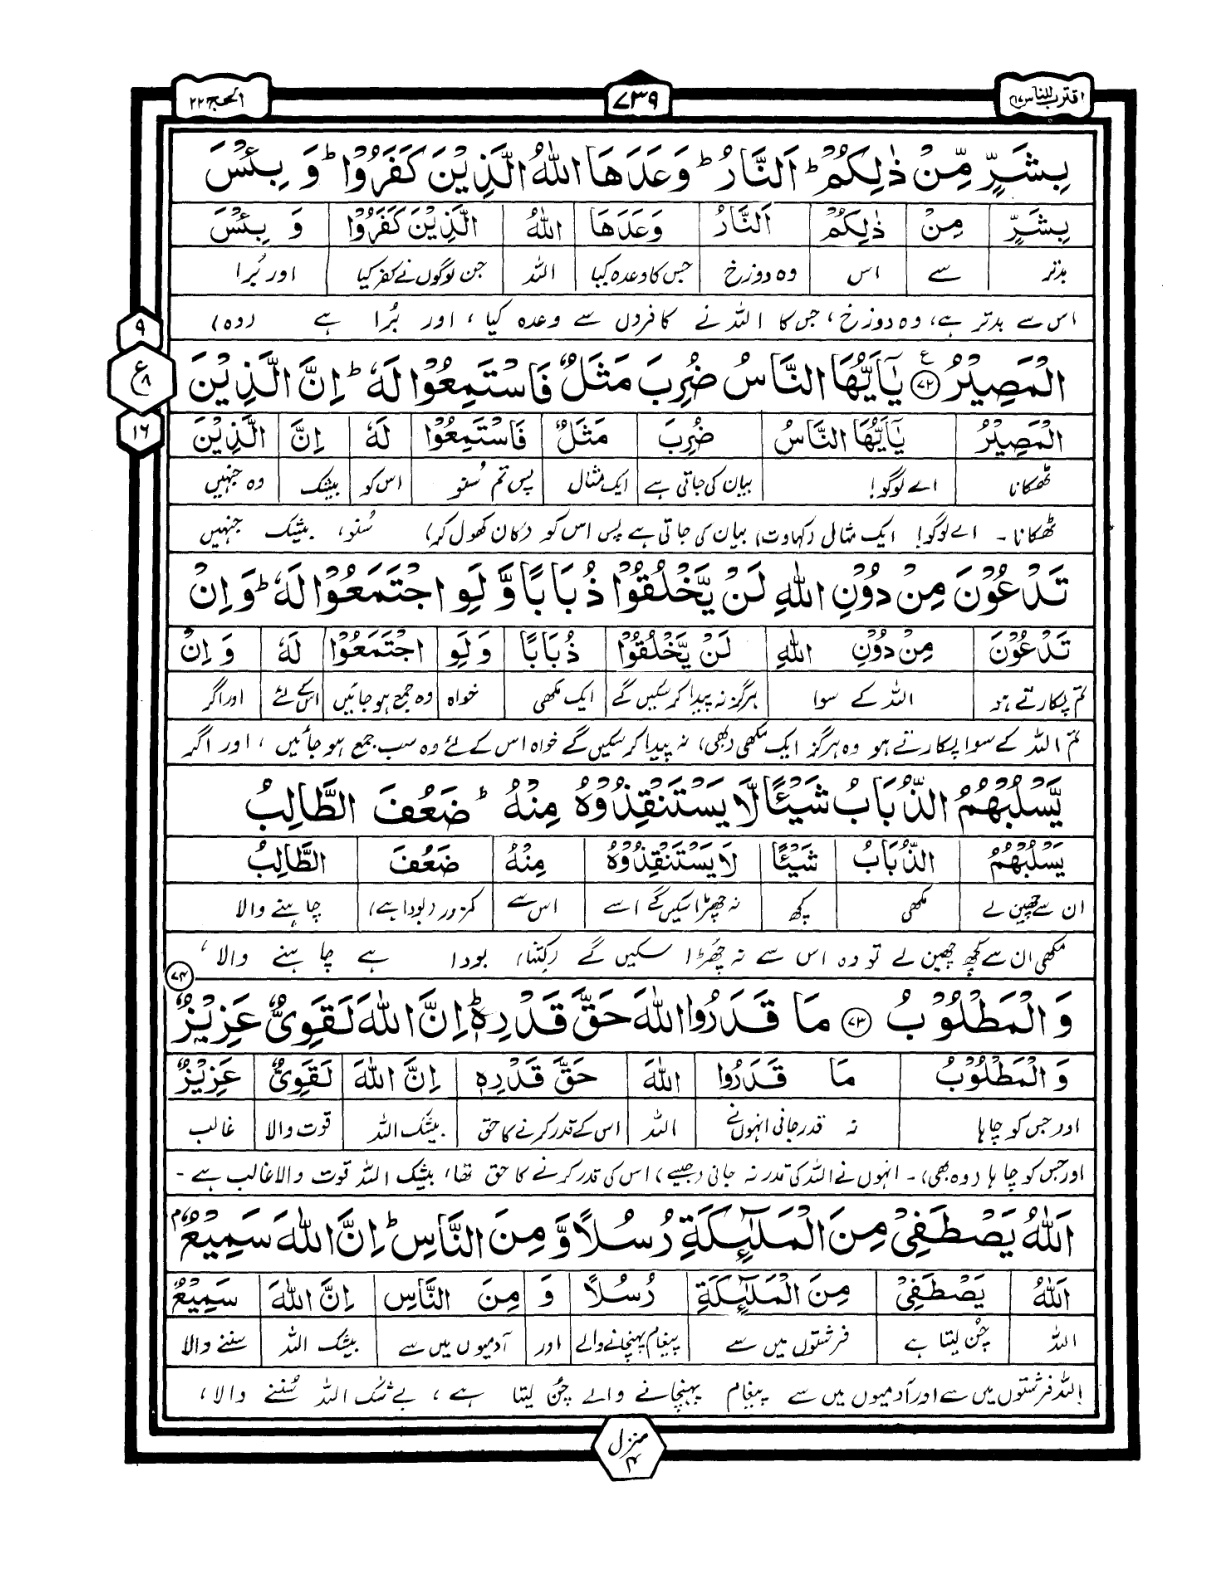 اقترب للناس ١٧
٧٣٩
الحج ٢٢
بِشَرٍّ مِّنْ ذٰلِكُمُ ؕ اَلنَّارُ ؕ وَعَدَهَا اللّٰهُ الَّذِيْنَ كَفَرُوْا ؕ وَ بِئْسَ
بِشَرٍّ مِنْ ذٰلِكُمُ اَلنَّارُ وَعَدَهَا اللّٰهُ الَّذِيْنَ كَفَرُوْا وَ بِئْسَ
بدتر سے اس وہ دوزخ جس کا وعدہ کیا اللہ جن لوگوں نے کفر کیا اور بُرا
اس سے بدتر ہے، وہ دوزخ، جس کا اللہ نے کافروں سے وعدہ کیا، اور بُرا ہے (وہ)
٩
ع ٨
١٦
الْمَصِيْرُ ۧ ﴿٧٢﴾ يٰۤاَيُّهَا النَّاسُ ضُرِبَ مَثَلٌ فَاسْتَمِعُوْا لَهٗ ؕ اِنَّ الَّذِيْنَ
الْمَصِيْرُ يٰۤاَيُّهَا النَّاسُ ضُرِبَ مَثَلٌ فَاسْتَمِعُوْا لَهٗ اِنَّ الَّذِيْنَ
ٹھکانا اے لوگو! بیان کی جاتی ہے ایک مثال پس تم سُنو اس کو بیشک وہ جنہیں
ٹھکانا۔ اے لوگو! ایک مثال (کہاوت) بیان کی جاتی ہے پس اس کو (کان کھول کر) سُنو، بیشک جنہیں
تَدْعُوْنَ مِنْ دُوْنِ اللّٰهِ لَنْ يَّخْلُقُوْا ذُبَابًا وَّ لَوِ اجْتَمَعُوْا لَهٗ ؕ وَاِنْ
تَدْعُوْنَ مِنْ دُوْنِ اللّٰهِ لَنْ يَّخْلُقُوْا ذُبَابًا وَ لَوِ اجْتَمَعُوْا لَهٗ وَ اِنْ
تم پکارتے ہو اللہ کے سوا ہرگز نہ پیدا کر سکیں گے ایک مکھی خواہ وہ جمع ہو جائیں اس کے لئے اور اگر
تم اللہ کے سوا پکارتے ہو وہ ہرگز ایک مکھی (بھی) نہ پیدا کر سکیں گے خواہ اس کے لئے وہ سب جمع ہو جائیں، اور اگر
يَّسْلُبْهُمُ الذُّبَابُ شَيْئًا لَّا يَسْتَنْقِذُوْهُ مِنْهُ ؕ ضَعُفَ الطَّالِبُ
يَسْلُبْهُمُ الذُّبَابُ شَيْئًا لَا يَسْتَنْقِذُوْهُ مِنْهُ ضَعُفَ الطَّالِبُ
ان سے چھین لے مکھی کچھ نہ چھڑا سکیں گے اسے اس سے کمزور (بودا ہے) چاہنے والا
مکھی ان سے کچھ چھین لے تو وہ اس سے نہ چُھڑا سکیں گے (کتنا) بودا ہے چاہنے والا،
وَ الْمَطْلُوْبُ ﴿٧٣﴾ مَا قَدَرُوا اللّٰهَ حَقَّ قَدْرِهٖ ؕ اِنَّ اللّٰهَ لَقَوِيٌّ عَزِيْزٌ ﴿٧٤﴾
وَ الْمَطْلُوْبُ مَا قَدَرُوا اللّٰهَ حَقَّ قَدْرِهٖ اِنَّ اللّٰهَ لَقَوِيٌّ عَزِيْزٌ
اور جس کو چاہا نہ قدر جانی انہوں نے اللہ اس کے قدر کرنے کا حق بیشک اللہ قوت والا غالب
اور جس کو چاہا (وہ بھی)۔ انہوں نے اللہ کی قدر نہ جانی (جیسے) اس کی قدر کرنے کا حق تھا، بیشک اللہ قوت والا غالب ہے۔
اَللّٰهُ يَصْطَفِيْ مِنَ الْمَلٰٓئِكَةِ رُسُلًا وَّ مِنَ النَّاسِ ؕ اِنَّ اللّٰهَ سَمِيْعٌۢ
اَللّٰهُ يَصْطَفِيْ مِنَ الْمَلٰٓئِكَةِ رُسُلًا وَ مِنَ النَّاسِ اِنَّ اللّٰهَ سَمِيْعٌ
اللہ چُن لیتا ہے فرشتوں میں سے پیغام پہنچانے والے اور آدمیوں میں سے بیشک اللہ سننے والا
اللہ فرشتوں میں سے اور آدمیوں میں سے پیغام پہنچانے والے چُن لیتا ہے، بے شک اللہ سُننے والا،
منزل ۴